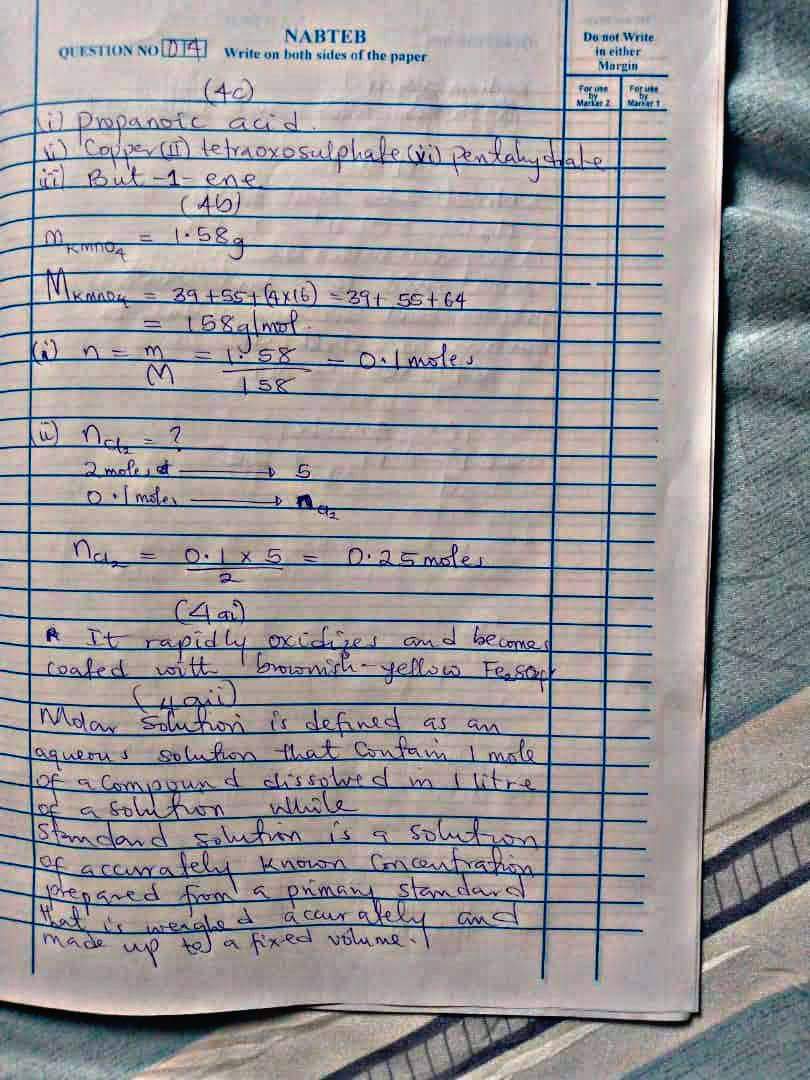 NABTEB
QUESTION NO 04 Write on both sides of the paper
Do not Write in either Margin
For use by Marker 2 For use by Marker 1
(4c)
i) Propanoic acid.
ii) Copper (II) tetraoxosulphate (vi) pentahydrate
iii) But-1-ene
(4b)
mKMnO4 = 1.58g
MKMnO4 = 39+55+(4x16) = 39+ 55+64
= 158g/mol.
(i) n = m/M = 1.58/158 = 0.1 moles
(ii) nCl2 = ?
2 moles → 5
0.1 moles → nCl2
nCl2 = 0.1 x 5/2 = 0.25 moles
(4ai)
It rapidly oxidizes and becomes
coated with brownish-yellow Fe2SO4
(4aii)
Molar Solution is defined as an
aqueous solution that Contain 1 mole
of a Compound dissolved in 1 litre
of a solution while
Standard solution is a solution
of accurately known Concentration
prepared from a primary standard
that is weighed accurately and
made up to a fixed volume.